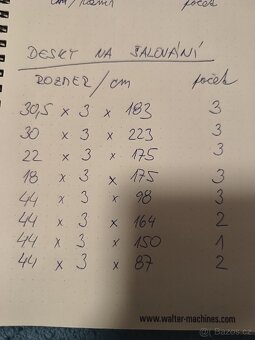 cm/
počet
DESKY NA ŠALOVÁNÍ
ROZMĚR / cm počet
30,5 x 3 x 183 3
30 x 3 x 223 3
22 x 3 x 175 3
18 x 3 x 175 3
44 x 3 x 98 3
44 x 3 x 164 2
44 x 3 x 150 1
44 x 3 x 87 2
www.walter-machines.com